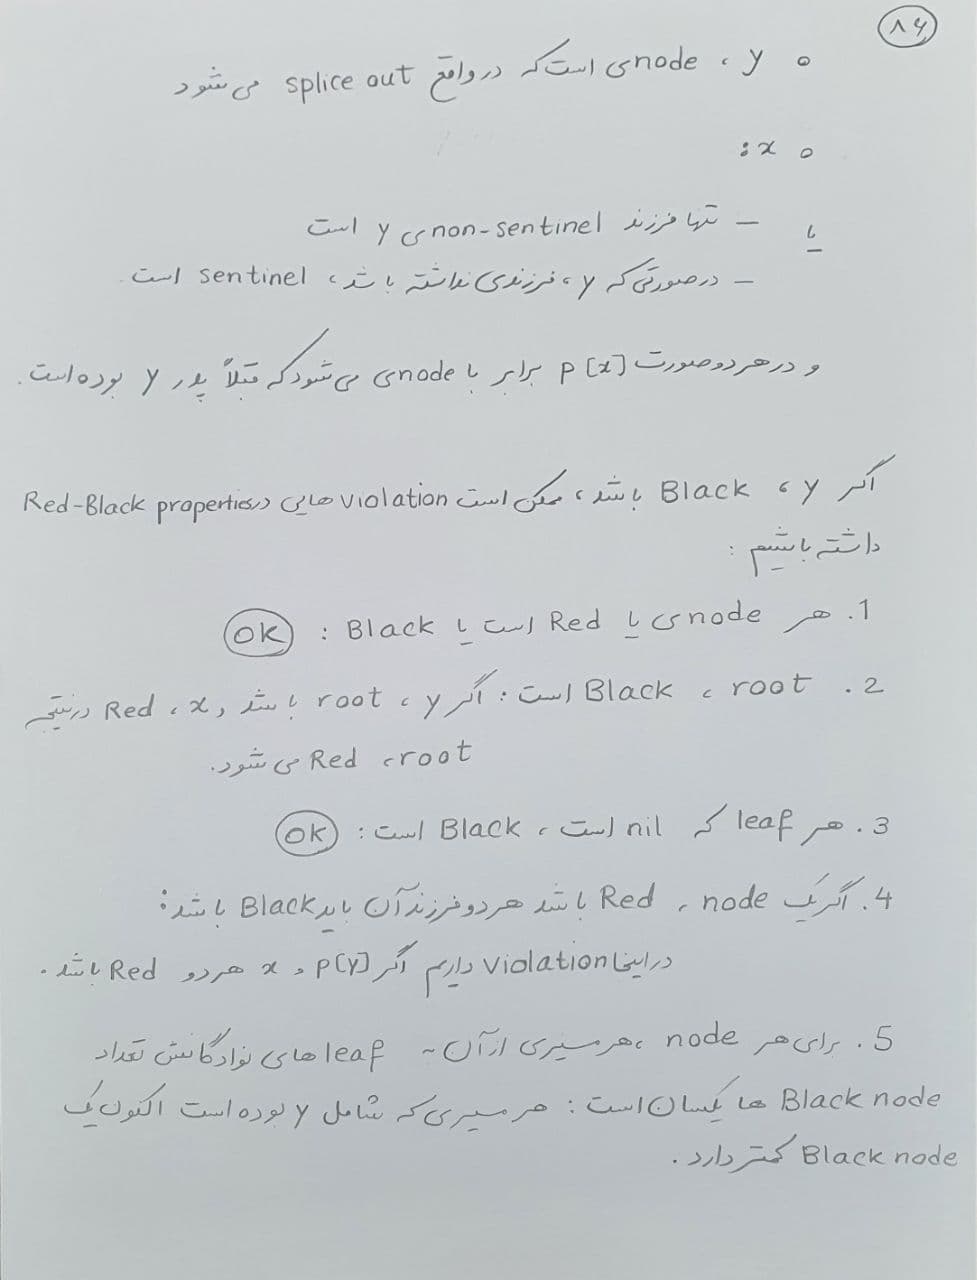 ۸۶
o y ، node‌ی است که در واقع splice out می‌شود
o x:
یا – تنها فرزند non-sentinel ی y است
– در صورتی که y ، فرزندی نداشته باشد، sentinel است.
و در هر دو صورت p[x] برابر با node‌ی می‌شود که قبلاً پدر y بوده است.
اگر y ، Black باشد، ممکن است violation هایی در Red-Black properties
داشته باشیم :
1. هر node‌ی یا Red است یا Black : OK
2. root ، Black است : اگر y ، root باشد و x ، Red در نتیجه
root ، Red می‌شود.
3. هر leaf که nil است ، Black است : OK
4. اگر یک node ، Red باشد هر دو فرزند آن باید Black باشد:
در اینجا Violation داریم اگر p[y] و x هر دو Red باشد.
5. برای هر node ، هر مسیری از آن به leaf های نوادگانش تعداد
Black node ها یکسان است : هر مسیری که شامل y بوده است اکنون یک
Black node کمتر دارد.